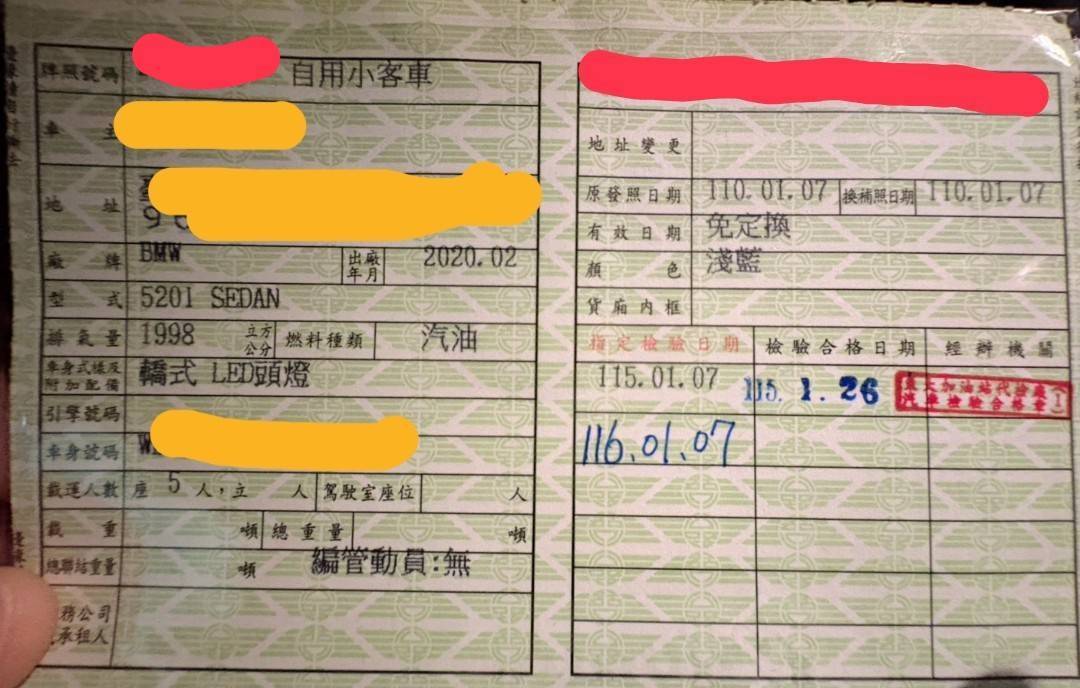 牌照號碼 自用小客車
車主
地址
9
廠牌 BMW 出廠年月 2020.02
型式 520I SEDAN
排氣量 1998 立方公分 燃料種類 汽油
車身式樣及附加配備 轎式 LED頭燈
引擎號碼
車身號碼 W
載運人數 座 5 人,立 人 駕駛室座位 人
載重 噸 總重量 噸
總聯結重量 噸 編管動員:無
務公司
承租人
地址變更
原發照日期 110.01.07 換補照日期 110.01.07
有效日期 免定換
顏色 淺藍
貨廂內框
指定檢驗日期 檢驗合格日期 經辦機關
115.01.07 115. 1. 26 加油站代檢廠
汽車檢驗合格章 1
116.01.07